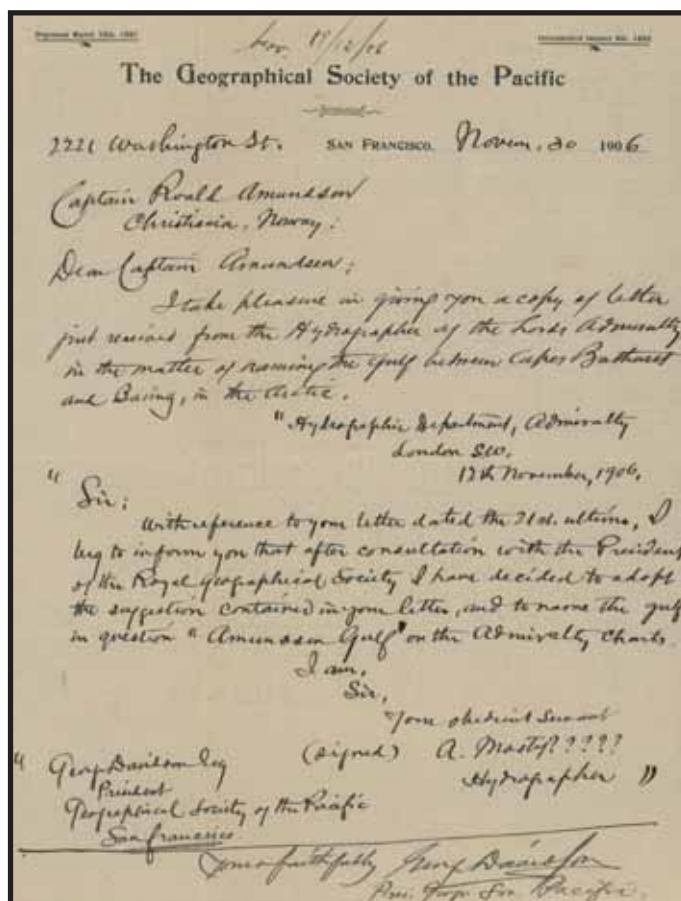 19/12/06
The Geographical Society of the Pacific
2221 Washington St. SAN FRANCISCO, Novem. 30 1906
Captain Roald Amundson
Christiania, Norway:
Dear Captain Amundsen;
I take pleasure in giving you a copy of letter
just received from the Hydrographer of the Lords Admiralty
in the matter of naming the Gulf between Capes Bathurst
and Baring, in the Arctic.
"Hydrographic Department, Admiralty
London S.W.
17th November, 1906.
"Sir:
With reference to your letter dated the 21st. ultimo, I
beg to inform you that after consultation with the President
of the Royal Geographical Society I have decided to adopt
the suggestion contained in your letter, and to name the gulf
in question "Amundsen Gulf" on the Admiralty Charts.
I am,
Sir,
Your obedient Servant
(signed) A. Mostyn????
Hydrographer "
"George Davidson Esq
President
Geographical Society of the Pacific
San Francisco
Yours faithfully George Davidson
Pres. Geogr. Soc. Pacific.